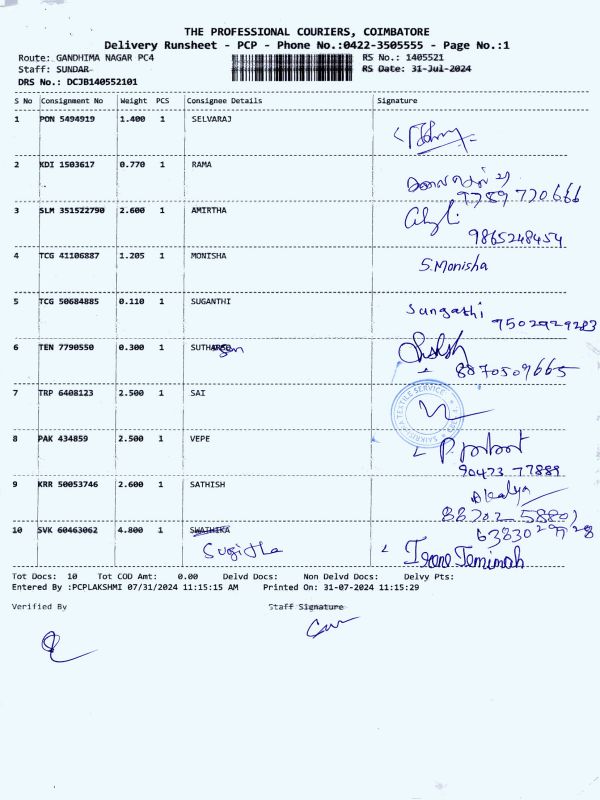 THE PROFESSIONAL COURIERS, COIMBATORE
Delivery Runsheet - PCP - Phone No.:0422-3505555 - Page No.:1
Route: GANDHIMA NAGAR PC4 RS No.: 1405521
Staff: SUNDAR RS Date: 31-Jul-2024
DRS No.: DCJB140552101
S No Consignment No Weight PCS Consignee Details Signature
1 PON 5494919 1.400 1 SELVARAJ
2 KDI 1503617 0.770 1 RAMA
9789 720666
3 SLM 351522790 2.600 1 AMIRTHA
9865248454
4 TCG 41106887 1.205 1 MONISHA S.Monisha
5 TCG 50684885 0.110 1 SUGANTHI Sungathi
9502929283
6 TEN 7790550 0.300 1
8870509665
7 TRP 6408123 2.500 1 SAI
TEXTILE SERVICE
8 PAK 434859 2.500 1 VEPE
90473 77889
9 KRR 50053746 2.600 1 SATHISH Akalya
88702 58801
10 SVK 60463062 4.800 1 SWATHIKA
Sugitha Irene Jemimah
Tot Docs: 10 Tot COD Amt: 0.00 Delvd Docs: Non Delvd Docs: Delvy Pts:
Entered By :PCPLAKSHMI 07/31/2024 11:15:15 AM Printed On: 31-07-2024 11:15:29
Verified By Staff Signature